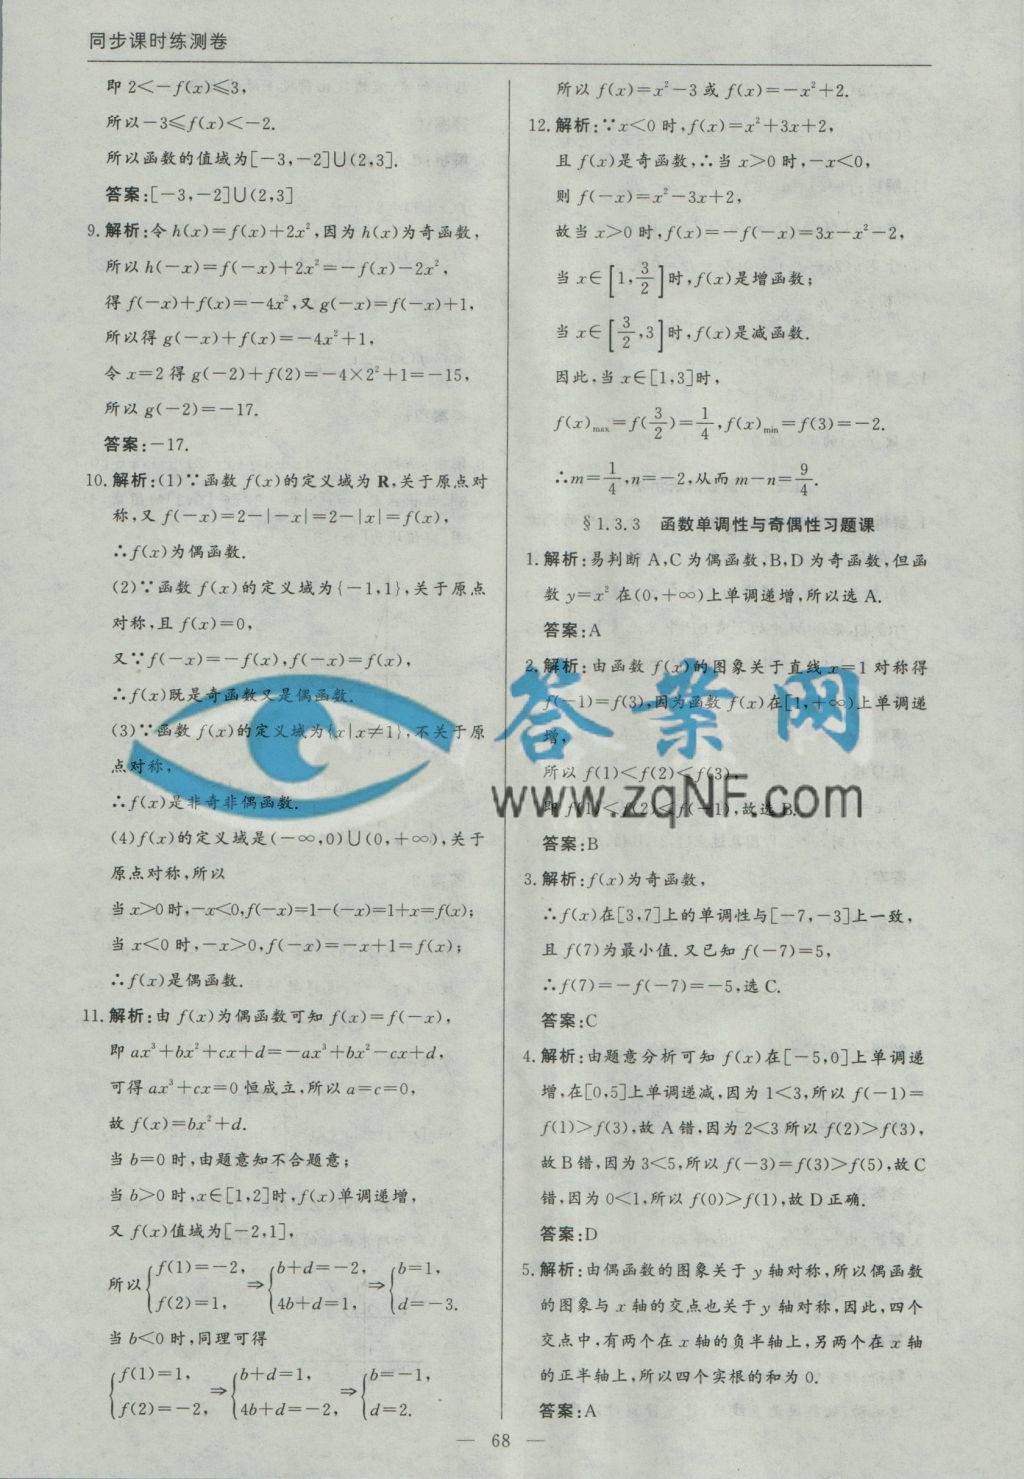 同步课时练测卷
即 2<-f(x)≤3,
所以-3≤f(x)<-2.
所以函数的值域为[-3,-2]∪(2,3].
答案:[-3,-2]∪(2,3]
9.解析:令 h(x)=f(x)+2x²,因为 h(x)为奇函数,
所以 h(-x)=f(-x)+2x²=-f(x)-2x²,
得 f(-x)+f(x)=-4x²,又 g(-x)=f(-x)+1,
所以得 g(-x)+f(x)=-4x²+1,
令 x=2 得 g(-2)+f(2)=-4×2²+1=-15,
所以 g(-2)=-17.
答案:-17.
10.解析:(1)∵函数 f(x)的定义域为 R,关于原点对
称,又 f(-x)=2-|-x|=2-|x|=f(x),
∴f(x)为偶函数.
(2)∵函数 f(x)的定义域为{-1,1},关于原点
对称,且 f(x)=0,
又∵f(-x)=-f(x),f(-x)=f(x),
∴f(x)既是奇函数又是偶函数.
(3)∵函数 f(x)的定义域为{x|x≠1},不关于原
点对称,
∴f(x)是非奇非偶函数.
(4)f(x)的定义域是(-∞,0)∪(0,+∞),关于
原点对称,所以
当x>0时,-x<0,f(-x)=1-(-x)=1+x=f(x);
当 x<0 时,-x>0,f(-x)=-x+1=f(x);
∴f(x)是偶函数.
11.解析:由 f(x)为偶函数可知 f(x)=f(-x),
即 ax³+bx²+cx+d=-ax³+bx²-cx+d,
可得 ax³+cx=0 恒成立,所以 a=c=0,
故 f(x)=bx²+d.
当 b=0 时,由题意知不合题意;
当 b>0 时,x∈[1,2]时,f(x)单调递增,
又 f(x)值域为[-2,1],
所以{f(1)=-2, f(2)=1, ⇒{b+d=-2, 4b+d=1, ⇒{b=1, d=-3.
当 b<0 时,同理可得
{f(1)=1, f(2)=-2, ⇒{b+d=1, 4b+d=-2, ⇒{b=-1, d=2.
所以 f(x)=x²-3 或 f(x)=-x²+2.
12.解析:∵x<0 时,f(x)=x²+3x+2,
且 f(x)是奇函数,∴当 x>0 时,-x<0,
则 f(-x)=x²-3x+2,
故当 x>0 时,f(x)=-f(-x)=3x-x²-2,
当 x∈[1,3/2]时,f(x)是增函数;
当 x∈[3/2,3]时,f(x)是减函数.
因此,当 x∈[1,3]时,
f(x)max=f(3/2)=1/4,f(x)min=f(3)=-2.
∴m=1/4,n=-2,从而 m-n=9/4.
§1.3.3 函数单调性与奇偶性习题课
1.解析:易判断 A,C 为偶函数,B,D 为奇函数,但函
数 y=x² 在(0,+∞)上单调递增,所以选 A.
答案:A
2.解析:由函数 f(x)的图象关于直线 x=1 对称得
f(-1)=f(3),因为函数 f(x)在[1,+∞)上单调递
增,
所以 f(1)<f(2)<f(3),
即 f(1)<f(2)<f(-1),故选 B.
答案:B
3.解析:f(x)为奇函数,
∴f(x)在[3,7]上的单调性与[-7,-3]上一致,
且 f(7)为最小值.又已知 f(-7)=5,
∴f(7)=-f(-7)=-5,选 C.
答案:C
4.解析:由题意分析可知 f(x)在[-5,0]上单调递
增,在[0,5]上单调递减,因为 1<3,所以 f(-1)=
f(1)>f(3),故 A 错,因为 2<3 所以 f(2)>f(3),
故 B 错,因为 3<5,所以 f(-3)=f(3)>f(5),故 C
错,因为 0<1,所以 f(0)>f(1),故 D 正确.
答案:D
5.解析:由偶函数的图象关于 y 轴对称,所以偶函数
的图象与 x 轴的交点也关于 y 轴对称,因此,四个
交点中,有两个在 x 轴的负半轴上,另两个在 x 轴
的正半轴上,所以四个实根的和为 0.
答案:A
答案网
www.zqNF.com
— 68 —